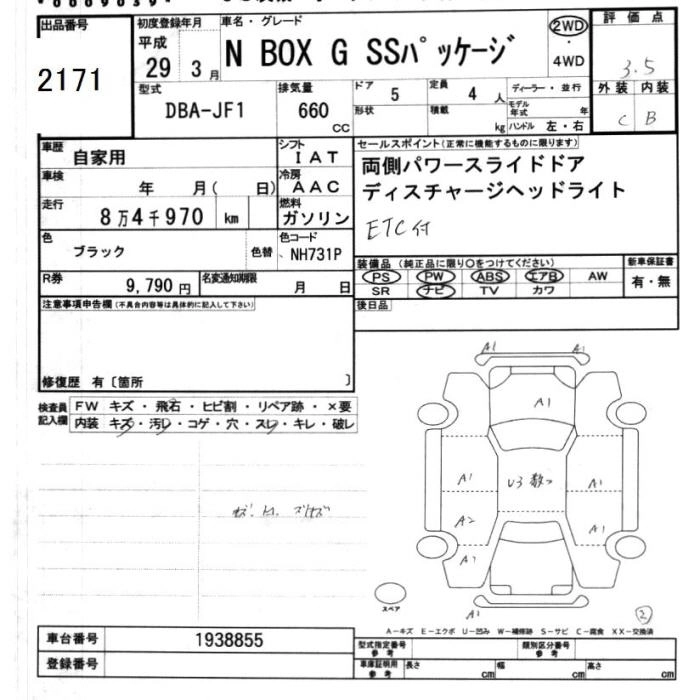 出品番号
2171
初度登録年月
平成
29 3月
車名・グレード
N BOX G SSパッケージ
2WD
・
4WD
評価点
3.5
外装 内装
C B
型式
DBA-JF1
排気量
660
CC
ドア
5
形状
定員
4 人
積載
kg
ディーラー・並行
モデル年式 年
ハンドル 左・右
車歴
自家用
シフト
IAT
車検
年 月( 日)
冷房
AAC
走行
8万4千970 km
燃料
ガソリン
色
ブラック
色替
色コード
NH731P
R券
9,790円
名変通知期限
月 日
セールスポイント(正常に機能するものに限ります)
両側パワースライドドア
ディスチャージヘッドライト
ETC付
装備品(純正品に限り○をつけてください)
PS PW ABS エアB AW
SR ナビ TV カワ
新車保証書
有・無
後日品
注意事項申告欄(不具合内容等は具体的に記入して下さい)
修復歴 有〔箇所 〕
検査員記入欄
FW キズ・飛石・ヒビ割・リペア跡・×要
内装 キズ・汚レ・コゲ・穴・スレ・キレ・破レ
A1 A1
A1
A1 U3 数ヶ A1
A2 A1
スペア
A2
2
A-キズ E-エクボ U-凹み W-補修跡 S-サビ C-腐食 XX-交換済
車台番号
1938855
登録番号
型式指定番号
参考
類別区分番号
参考
車庫証明用
参考
長さ cm
幅 cm
高さ cm